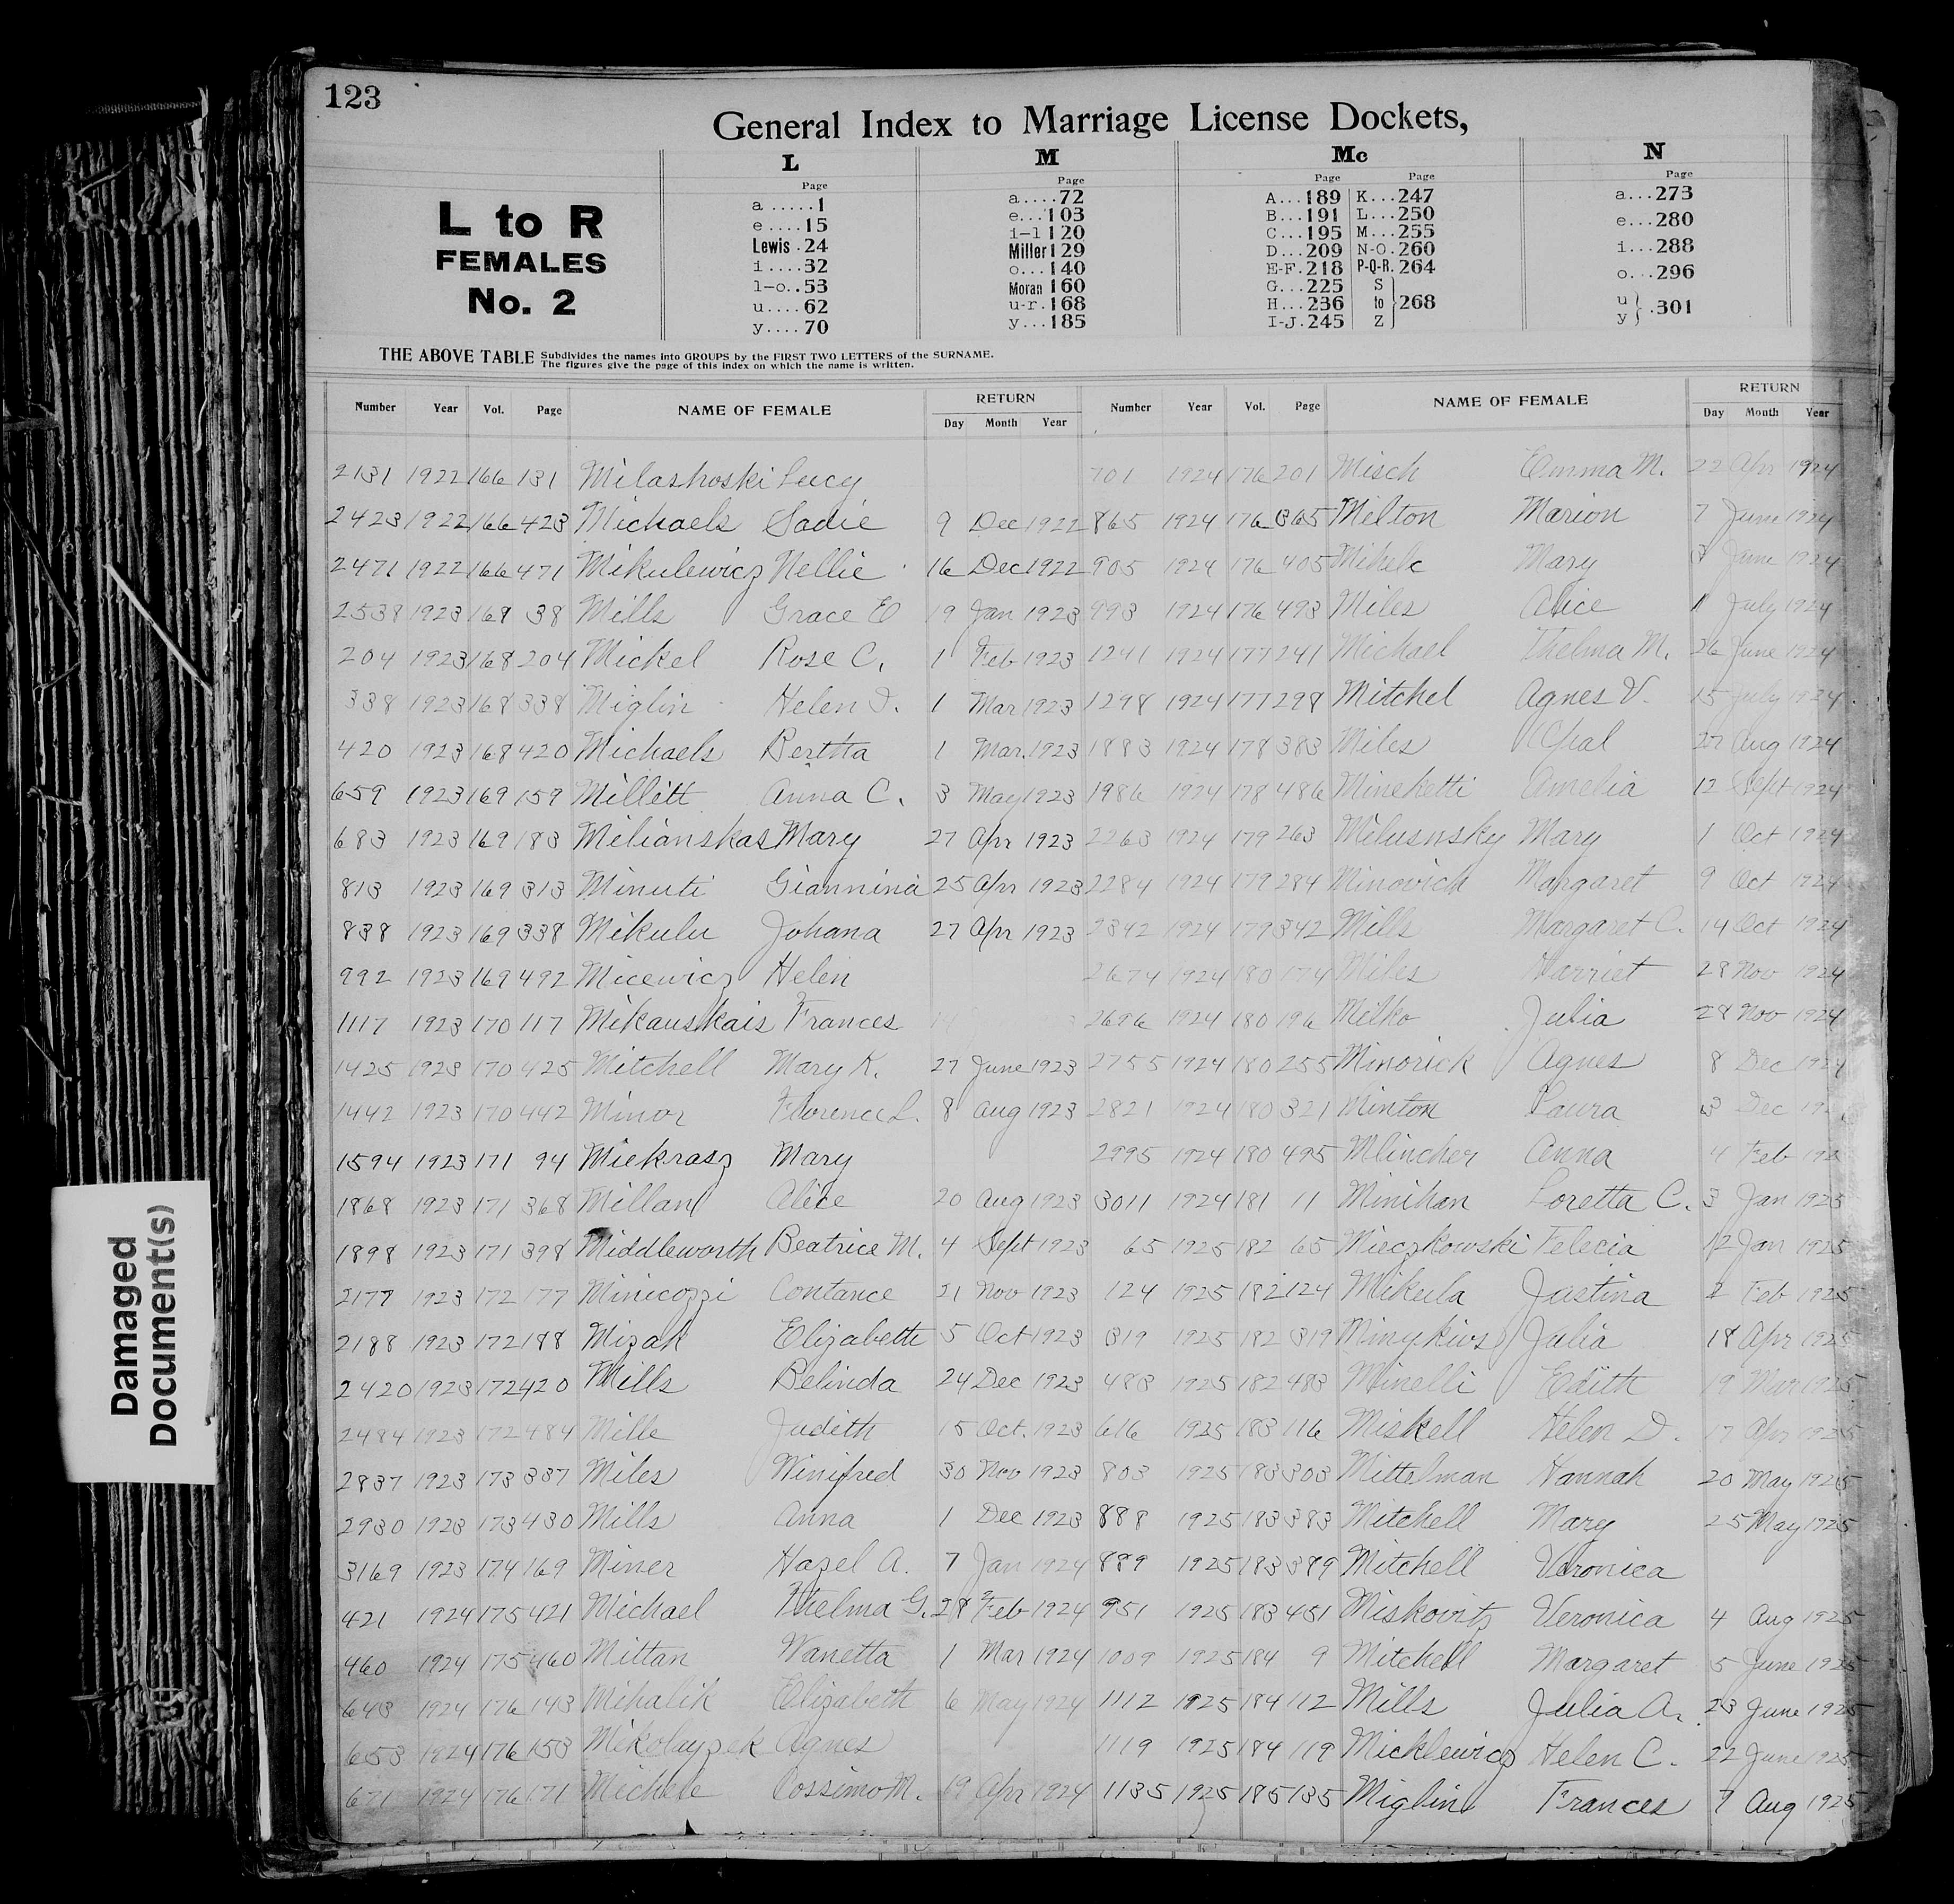 123
General Index to Marriage License Dockets,
L to R
FEMALES
No. 2
L
Page
a......1
e....15
Lewis.24
i....32
l-o..53
u....62
y....70
M
Page
a....72
e...103
i-l 120
Miller 129
o...140
Moran 160
u-r.168
y...185
Mc
Page Page
A...189 K...247
B...191 L...250
C...195 M...255
D...209 N-O.260
E-F.218 P-Q-R.264
G...225 S
H...236 to 268
I-J.245 Z
N
Page
a...273
e...280
i...288
o...296
u
y .301
THE ABOVE TABLE Subdivides the names into GROUPS by the FIRST TWO LETTERS of the SURNAME.
The figures give the page of this index on which the name is written.
Number Year Vol. Page NAME OF FEMALE RETURN Day Month Year
Number Year Vol. Page NAME OF FEMALE RETURN Day Month Year
2131 1922 166 131 Milashoski Lucy
2423 1922 166 423 Michaels Sadie 9 Dec 1922
2471 1922 166 471 Mikulewicz Nellie 16 Dec 1922
2538 1923 168 38 Mills Grace E 19 Jan 1923
204 1923 168 204 Mickel Rose C. 1 Feb 1923
338 1923 168 338 Miglin Helen I. 1 Mar 1923
420 1923 168 420 Michaels Bertha 1 Mar. 1923
659 1923 169 159 Millett Anna C. 3 May 1923
683 1923 169 183 Milianskas Mary 27 Apr 1923
813 1923 169 313 Minuti Giannina 25 Apr 1923
838 1923 169 338 Mikulu Johana 27 Apr 1923
992 1923 169 492 Micewicz Helen
1117 1923 170 117 Mikauskais Frances
1425 1923 170 425 Mitchell Mary K. 27 June 1923
1442 1923 170 442 Minor Florence L. 8 Aug 1923
1594 1923 171 94 Miekrasz Mary
1868 1923 171 368 Millan Alice 20 Aug 1923
1898 1923 171 398 Middleworth Beatrice M. 4 Sept 1923
2177 1923 172 177 Minicozzi Contance 21 Nov 1923
2188 1923 172 188 Mizak Elizabeth 5 Oct 1923
2420 1923 172 420 Mills Belinda 24 Dec 1923
2484 1923 172 484 Mille Judith 15 Oct. 1923
2837 1923 173 337 Miles Winifred 30 Nov 1923
2930 1923 173 430 Mills Anna 1 Dec 1923
3169 1923 174 169 Miner Hazel A. 7 Jan 1924
421 1924 175 421 Michael Thelma G. 28 Feb 1924
460 1924 175 460 Mittan Wanetta 1 Mar 1924
643 1924 176 143 Mihalik Elizabeth 6 May 1924
653 1924 176 153 Mikolayzek Agnes
671 1924 176 171 Michele Cossimo M. 19 Apr 1924
701 1924 176 201 Misch Emma M. 22 Apr 1924
865 1924 176 365 Milton Marion 7 June 1924
905 1924 176 405 Mihelc Mary 3 June 1924
993 1924 176 493 Miles Alice 1 July 1924
1241 1924 177 241 Michael Thelma M. 26 June 1924
1298 1924 177 298 Mitchel Agnes V. 15 July 1924
1883 1924 178 383 Miles Opal 27 Aug 1924
1986 1924 178 486 Minehetti Amelia 12 Sept 1924
2263 1924 179 263 Milusnsky Mary 1 Oct 1924
2284 1924 179 284 Minovich Margaret 9 Oct 1924
2342 1924 179 342 Mills Margaret C. 14 Oct 1924
2674 1924 180 174 Miles Harriet 28 Nov 1924
2696 1924 180 196 Milko Julia 28 Nov 1924
2755 1924 180 255 Minorick Agnes 8 Dec 1924
2821 1924 180 321 Minton Laura 3 Dec
2995 1924 180 495 Mlincher Anna 4 Feb
3011 1924 181 11 Minihan Loretta C. 3 Jan 1925
65 1925 182 65 Mieczkowski Felecia 12 Jan 1925
124 1925 182 124 Mikula Justina 2 Feb 1925
319 1925 182 319 Minykivs Julia 18 Apr 1925
483 1925 182 483 Minelli Edith 19 Mar 1925
616 1925 183 116 Miskell Helen D. 17 Apr 1925
803 1925 183 303 Mittelman Hannah 20 May 1925
888 1925 183 383 Mitchell Mary 25 May 1925
889 1925 183 389 Mitchell Veronica
951 1925 183 451 Miskovitz Veronica 4 Aug 1925
1009 1925 184 9 Mitchell Margaret 5 June 1925
1112 1925 184 112 Mills Julia A. 23 June 1925
1119 1925 184 119 Micklewicz Helen C. 22 June 1925
1135 1925 185 135 Miglin Frances 7 Aug 1925
Damaged
Document(s)